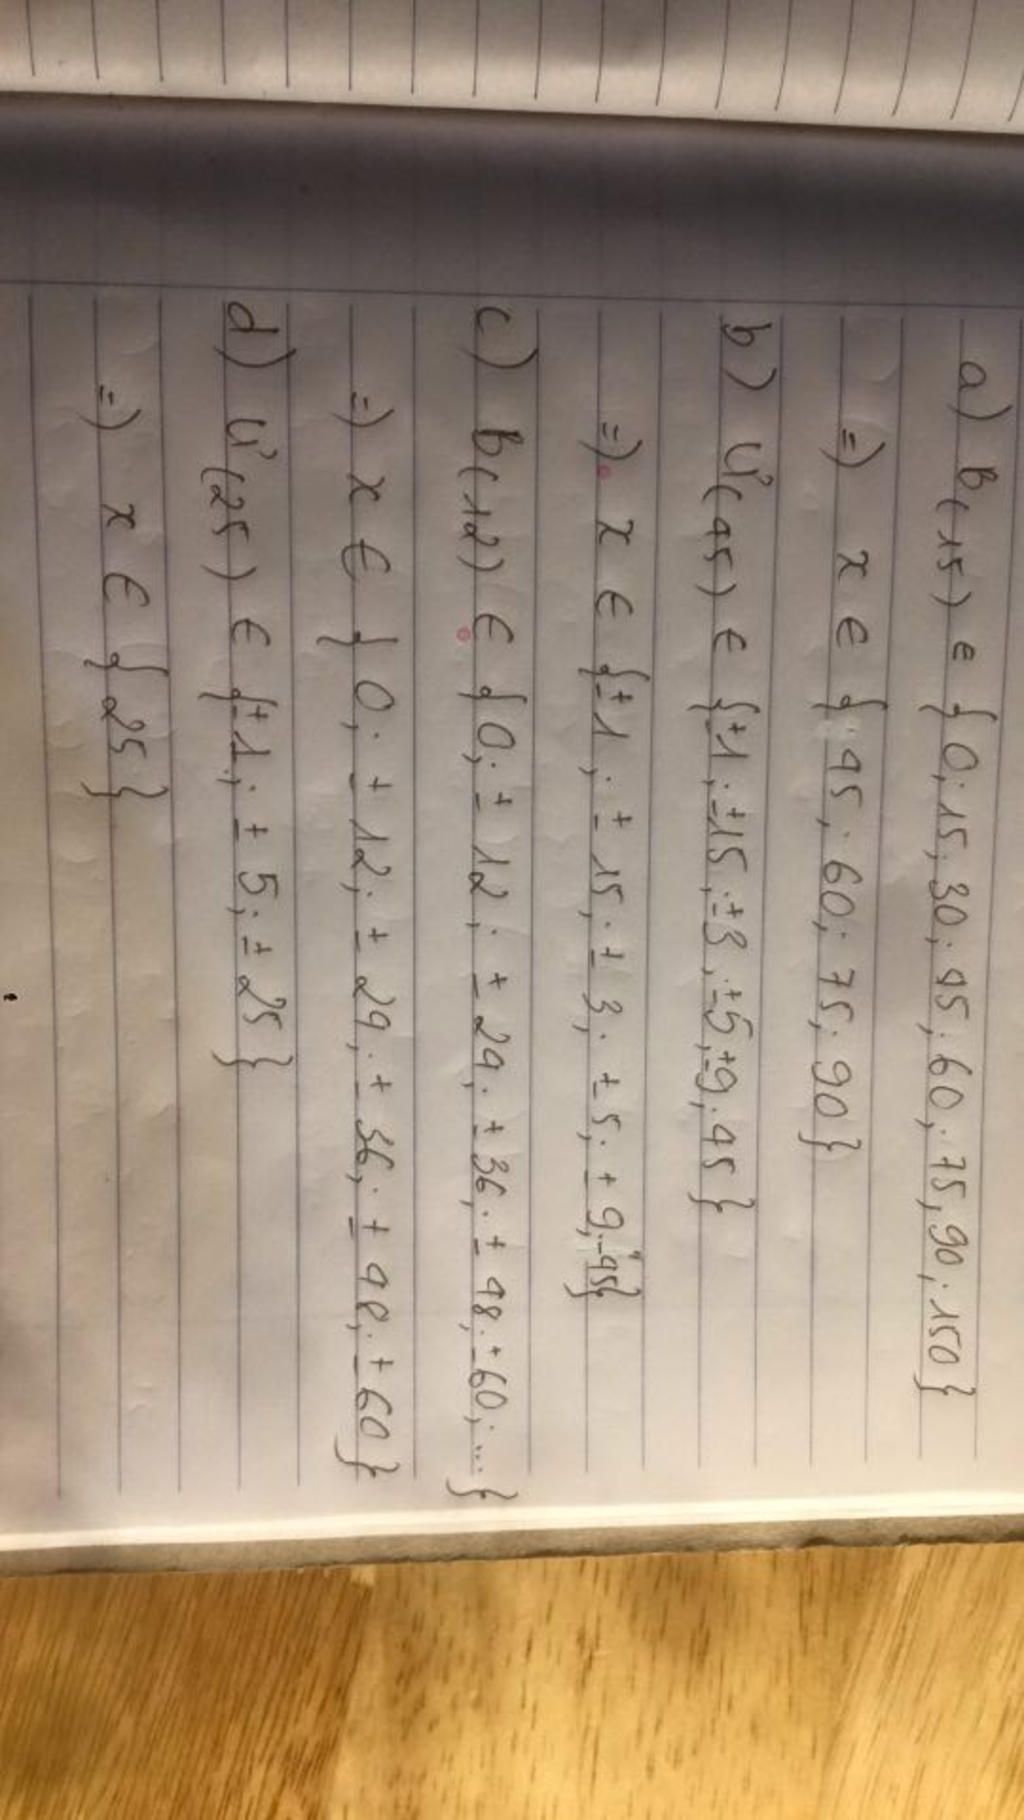 a) B(15) ∈ {0; 15; 30; 45; 60; 75; 90; 150}
=) x ∈ {45; 60; 75; 90}
b) Ư(45) ∈ {±1; ±15; ±3; ±5; ±9; 45}
=) x ∈ {±1; ±15; ±3; ±5; ±9; -45}
c) B(12) ∈ {0; ±12; ±24; ±36; ±48; ±60; ...}
=) x ∈ {0; ±12; ±24; ±36; ±48; ±60}
d) Ư(25) ∈ {±1; ±5; ±25}
=) x ∈ {25}